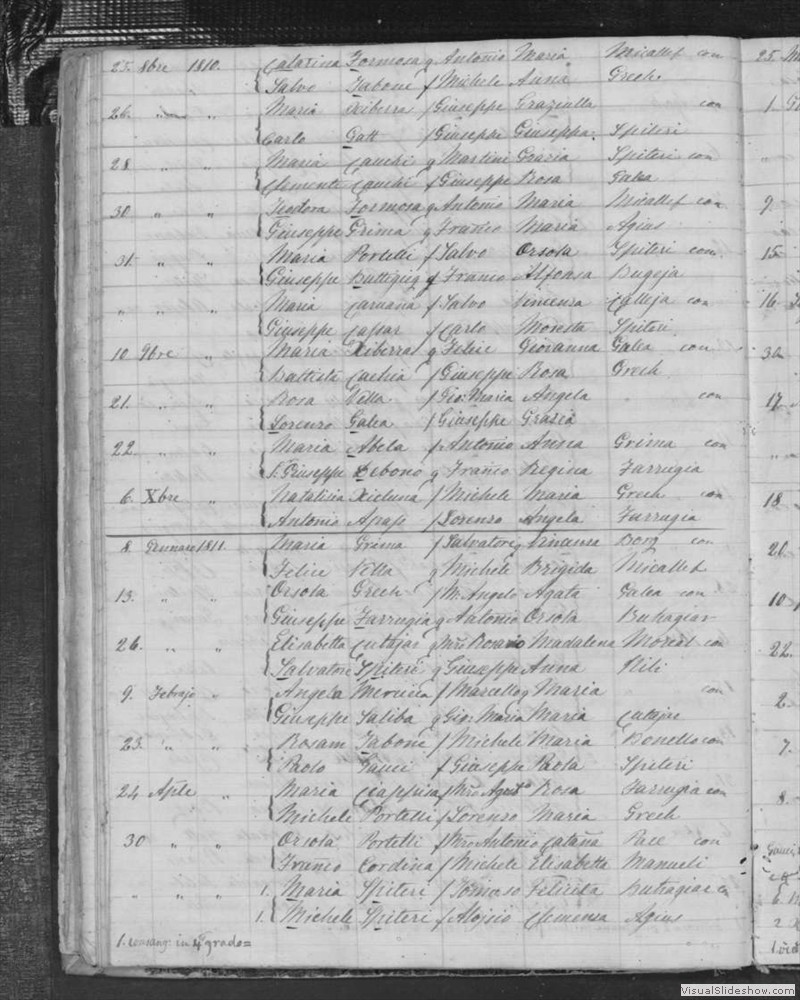 25. 8bre 1810. Catarina Formosa q Antonio Maria Micallef con
Salvo Tabone f Michele Anna Grech
26. " " Maria Xiberra f Giuseppe Graziulla con
Carlo Gatt f Giuseppe Giuseppa Spiteri
28 " " Maria Cauchi q Martino Grazia Spiteri con
Clemente Cauchi f Giuseppe Rosa Galea
30 " " Teodora Formosa q Antonio Maria Micallef con
Giuseppe Grima q Franco Maria Agius
31. " " Maria Portelli f Salvo Orsola Spiteri con
Giuseppe Buttigieg q Franco Alfonsa Bugeja
" " " Maria Caruana f Salvo Vincenza Calleja con
Giuseppe Cassar f Carlo Modesta Spiteri
10 9bre " Maria Xiberra q Felice Giovanna Galea con
Battista Cachia f Giuseppe Rosa Grech
21. " " Rosa Vella f Gio: Maria Angela " con
Lorenzo Galea f Giuseppe Grazia
22 " " Maria Abela f Antonio Anna Grima con
Giuseppe Debono q Franco Regina Farrugia
6. Xbre " Natalizia Xicluna f Michele Maria Grech con
Antonio Apap f Lorenzo Angela Farrugia
8. Gennaro 1811. Maria Grima f Salvatore Vincenza Borg con
Felice Vella q Michele Brigida Micallef
13. " " Orsola Grech f M. Angelo Agata Galea con
Giuseppe Farrugia q Antonio Orsola Buhagiar
26. " " Elisabetta Cutajar q Mro Rosario Madalena con
Salvatore Spiteri q Giuseppe Anna Pili
9. Febrajo " Angela Mercieca f Marcello q Maria con
Giuseppe Saliba q Gio: Maria Maria Cutajar
23. " " Rosam Tabone f Michele Maria Bonello con
Paolo Gauci f Giuseppe Paola Spiteri
24 Aple " Maria f Mro Agust° Rosa Farrugia con
Michele Portelli f Lorenzo Maria Grech
30 " " Orsola Portelli f Mro Antonio Catana Pace con
Franco Cordina f Michele Elisabetta Manueli
" " " 1. Maria Spiteri f Tomaso Felicita Buhagiar
1. Michele Spiteri f Aloisio Clemenza Agius
1. consang: in 4° grado=
25. M
1.
9.
15
16.
30
17
18
20.
10
22.
2.
7.
8.
Gauci
6.
2
1.
VisualSlideshow.com